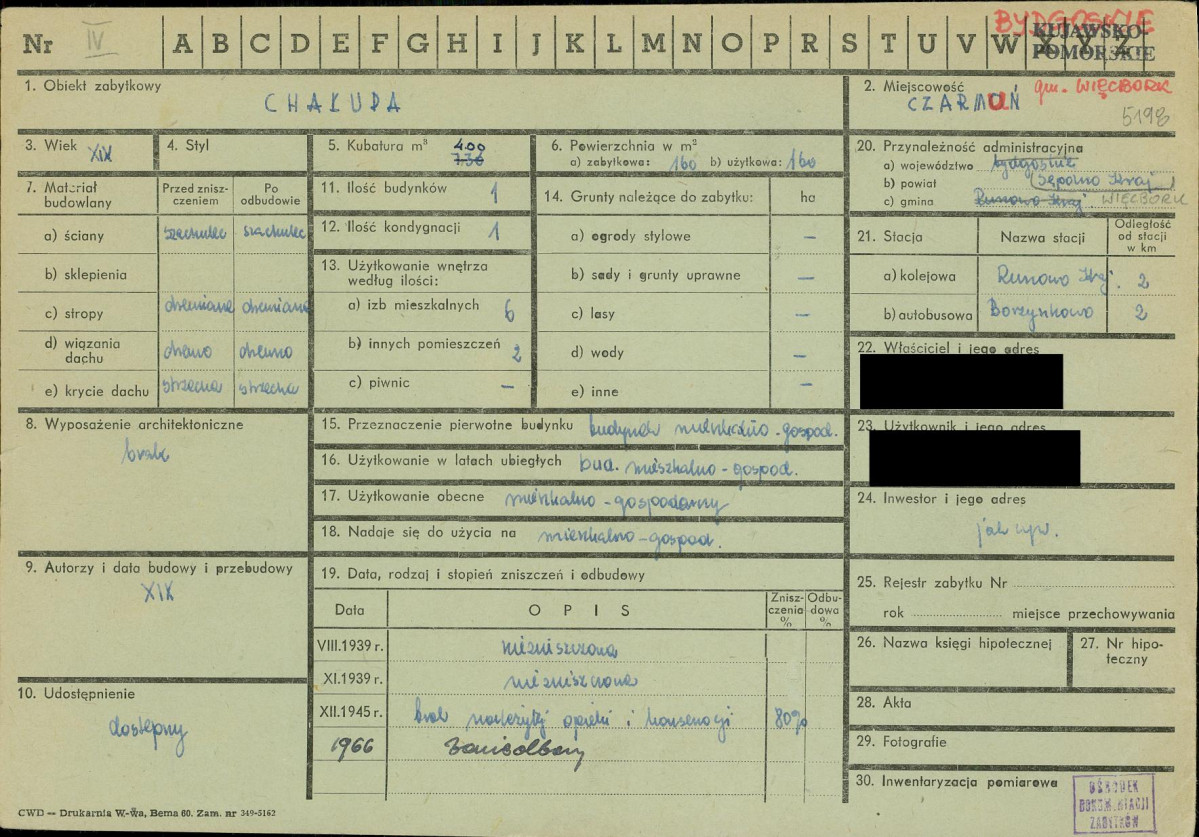 Nr IV A B C D E F G H I J K L M N O P R S T U V W X Y Z
BYDGOSKIE
KUJAWSKO-
POMORSKIE
1. Obiekt zabytkowy
CHAŁUPA
2. Miejscowość
CZARMUŃ
gm. WIĘCBORK
5198
3. Wiek XIX
4. Styl
5. Kubatura m³ 400
730
6. Powierzchnia w m²
a) zabytkowa: 160 b) użytkowa: 160
20. Przynależność administracyjna
a) województwo bydgoskie
b) powiat Sępólno Kraj.
c) gmina Runowo Kraj WIĘCBORK
7. Materiał budowlany
Przed zniszczeniem
Po odbudowie
a) ściany szachulec szachulec
b) sklepienia
c) stropy drewniane drewniane
d) wiązania dachu drewno drewno
e) krycie dachu strzecha strzecha
11. Ilość budynków 1
12. Ilość kondygnacji 1
13. Użytkowanie wnętrza
według ilości:
a) izb mieszkalnych 6
b) innych pomieszczeń 2
c) piwnic –
14. Grunty należące do zabytku: ha
a) ogrody stylowe –
b) sady i grunty uprawne –
c) lasy –
d) wody –
e) inne –
21. Stacja
Nazwa stacji
Odległość
od stacji
w km
a) kolejowa Runowo Kraj. 2
b) autobusowa Borzyszkowo 2
22. Właściciel i jego adres
23. Użytkownik i jego adres
24. Inwestor i jego adres
jak wyż.
8. Wyposażenie architektoniczne
brak
15. Przeznaczenie pierwotne budynku budynek mieszkalno-gospod.
16. Użytkowanie w latach ubiegłych bud. mieszkalno-gospod.
17. Użytkowanie obecne mieszkalno-gospodarczy
18. Nadaje się do użycia na mieszkalno-gospod.
9. Autorzy i data budowy i przebudowy
XIX
19. Data, rodzaj i stopień zniszczeń i odbudowy
Data
OPIS
Znisz-
czenia
%
Odbu-
dowa
%
VIII.1939 r. niezniszczona
XI.1939 r. niezniszczona
XII.1945 r. brak należytej opieki i konserwacji 80%
1966
10. Udostępnienie
dostępny
25. Rejestr zabytku Nr
rok miejsce przechowywania
26. Nazwa księgi hipotecznej
27. Nr hipo-
teczny
28. Akta
29. Fotografie
30. Inwentaryzacja pomiarowa
OŚRODEK
DOKUMENTACJI
ZABYTKÓW
CWD — Drukarnia W-wa, Bema 60. Zam. nr 349-5162